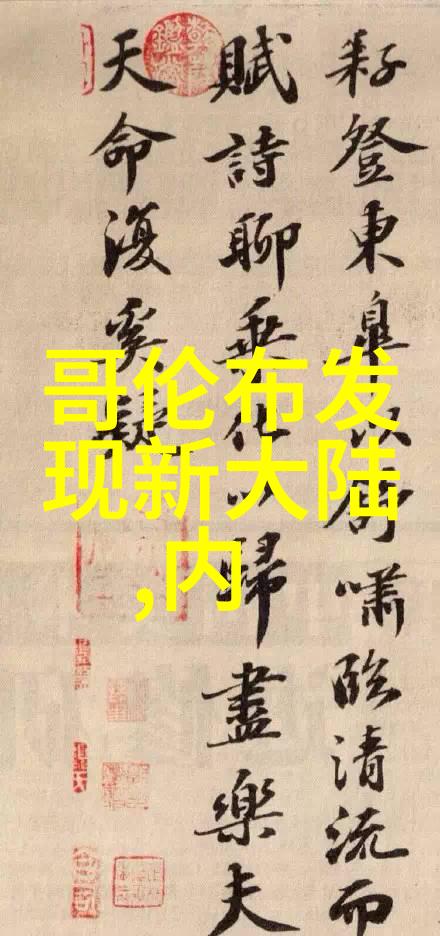 耔登東皋以舒嘯臨清流而
賦詩聊乘化以歸盡樂夫
天命復奚疑
哥伦布发
现新大陆
,内